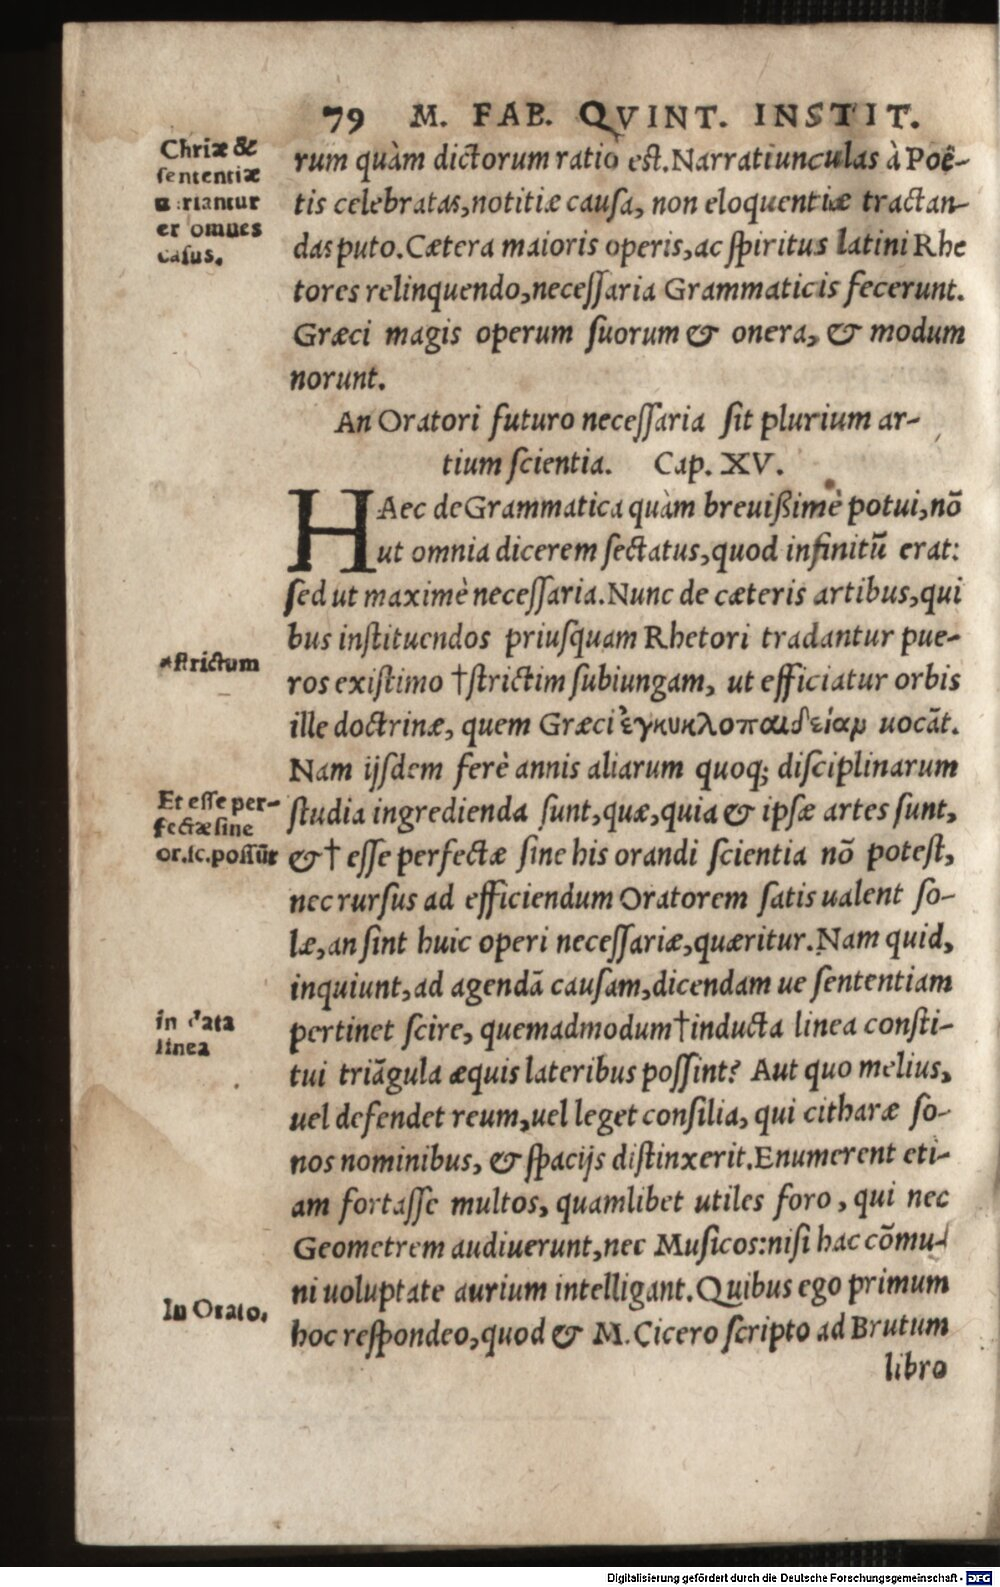 79 M. FAB. QVINT. INSTIT.
Chriæ &
sententiæ
uariantur
er omnes
casus.
rum quàm dictorum ratio est. Narratiunculas à Poë-
tis celebratas, notitiæ causa, non eloquentiæ tractan-
das puto. Cætera maioris operis, ac spiritus latini Rhe
tores relinquendo, necessaria Grammaticis fecerunt.
Græci magis operum suorum & onera, & modum
norunt.
An Oratori futuro necessaria sit plurium ar-
tium scientia. Cap. XV.
HAec de Grammatica quàm breuißimè potui, nō
ut omnia dicerem sectatus, quod infinitū erat:
sed ut maximè necessaria. Nunc de cæteris artibus, qui
bus instituendos priusquam Rhetori tradantur pue-
*strictum
ros existimo †strictim subiungam, ut efficiatur orbis
ille doctrinæ, quem Græci ἐγκυκλοπαιδείαν uocāt.
Nam ijsdem ferè annis aliarum quoq; disciplinarum
Et esse per-
fectæ sine
or.sc. possūt
studia ingredienda sunt, quæ, quia & ipsæ artes sunt,
& † esse perfectæ sine his orandi scientia nō potest,
nec rursus ad efficiendum Oratorem satis ualent so-
læ, an sint huic operi necessariæ, quæritur. Nam quid,
inquiunt, ad agendā causam, dicendam ue sententiam
in data
linea
pertinet scire, quemadmodum †inducta linea consti-
tui triāgula æquis lateribus possint? Aut quo melius,
uel defendet reum, uel leget consilia, qui citharæ so-
nos nominibus, & spacijs distinxerit. Enumerent eti-
am fortasse multos, quamlibet utiles foro, qui nec
Geometrem audiuerunt, nec Musicos: nisi hac cōmu-
ni uoluptate aurium intelligant. Quibus ego primum
In Orato.
hoc respondeo, quod & M. Cicero scripto ad Brutum
libro
Digitalisierung gefördert durch die Deutsche Forschungsgemeinschaft - DFG